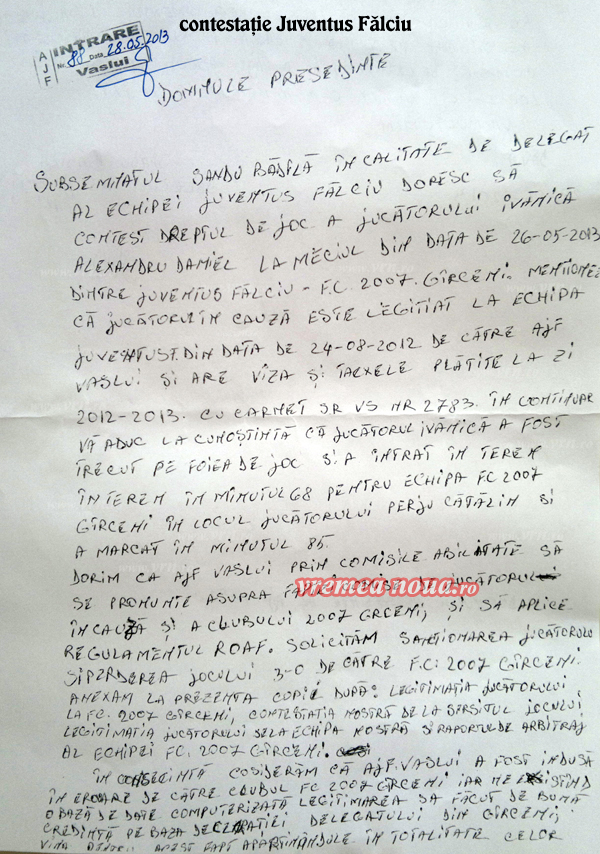 contestație Juventus Fălciu
AJF
INTRARE
Nr. 88 Data 28.05.2013
Vaslui
DOMNULE PRESEDINTE
SUBSEMNATUL SANDU BĂDĂLĂ ÎN CALITATE DE DELEGAT
AL ECHIPEI JUVENTUS FĂLCIU DORESC SĂ
CONTEST DREPTUL DE JOC A JUCĂTORULUI IVĂNICĂ
ALEXANDRU DANIEL LA MECIUL DIN DATA DE 26-05-2013
DINTRE JUVENTUS FĂLCIU - F.C. 2007. GÎRCENI. MENTIONEZ
CĂ JUCĂTORUL ÎN CAUZĂ ESTE LEGITIAT LA ECHIPA
JUVENTUS F. DIN DATA DE 24-08-2012 DE CĂTRE AJF
VASLUI ȘI ARE VIZA ȘI TACXELE PLĂTITE LA ZI
2012-2013. CU CARNET SR VS NR 2783. ÎN CONTINUAR
VĂ ADUC LA CUNOȘTINTĂ CĂ JUCĂTORUL IVĂNICĂ A FOST
TRECUT PE FOIEA DE JOC SI A INTRAT ÎN TEREN
ÎN TEREN ÎN MINUTUL 68 PENTRU ECHIPA FC 2007
GÎRCENI ÎN LOCUL JUCĂTORULUI PERJU CĂTĂLIN SI
A MARCAT ÎN MINUTUL 85.
DORIM CA AJF VASLUI PRIN COMISILE ABILITATE SĂ
SE PRONUNTE ASUPRA FAPTEI COMISE DE JUCĂTORUL
vremeanoua.ro
ÎN CAUZĂ ȘI A CLUBULUI 2007 GRCENI, ȘI SĂ APLICE
REGULAMENTUL ROAF. SOLICITĂM SANCTIONAREA JUCĂTORULU
SI PZRDEREA JOCULUI 3-0 DE CĂTRE F.C: 2007 GÎRCENI.
ANEXAM LA PREZENTA COPIE DUPĂ: LEGITIMAȚIA JUCĂTORULUI
LA FC. 2007 GÎRCENI, CONTESTATIA NOSTRĂ DE LA SFRSITUL JOCULUI
LEGITIMATIA JUCĂTORULUI DE LA ECHIPA NOSTRĂ SI RAPORTUL DE ARBITRAJ
AL ECHIPEI FC. 2007 GÎRCENI.
ÎN CONSECINTĂ COSIDERĂM CĂ AJF. VASLUI A FOST INDUSĂ
ÎN EROARE DE CĂTRE CLUBUL FC 2007 GÎRCENI IAR NEEXISTÎND
O BAZĂ DE DATE COMPUTERIZATĂ LEGITIMAREA SA FĂCUT DE BUNĂ
CREDINTĂ PE BAZA DECLARATIEI DELEGATULUI DIN GÎRCENI,
VINA PENTRU ACEST FAPT APARTINÎNDULE ÎN TOTALITATE CELOR